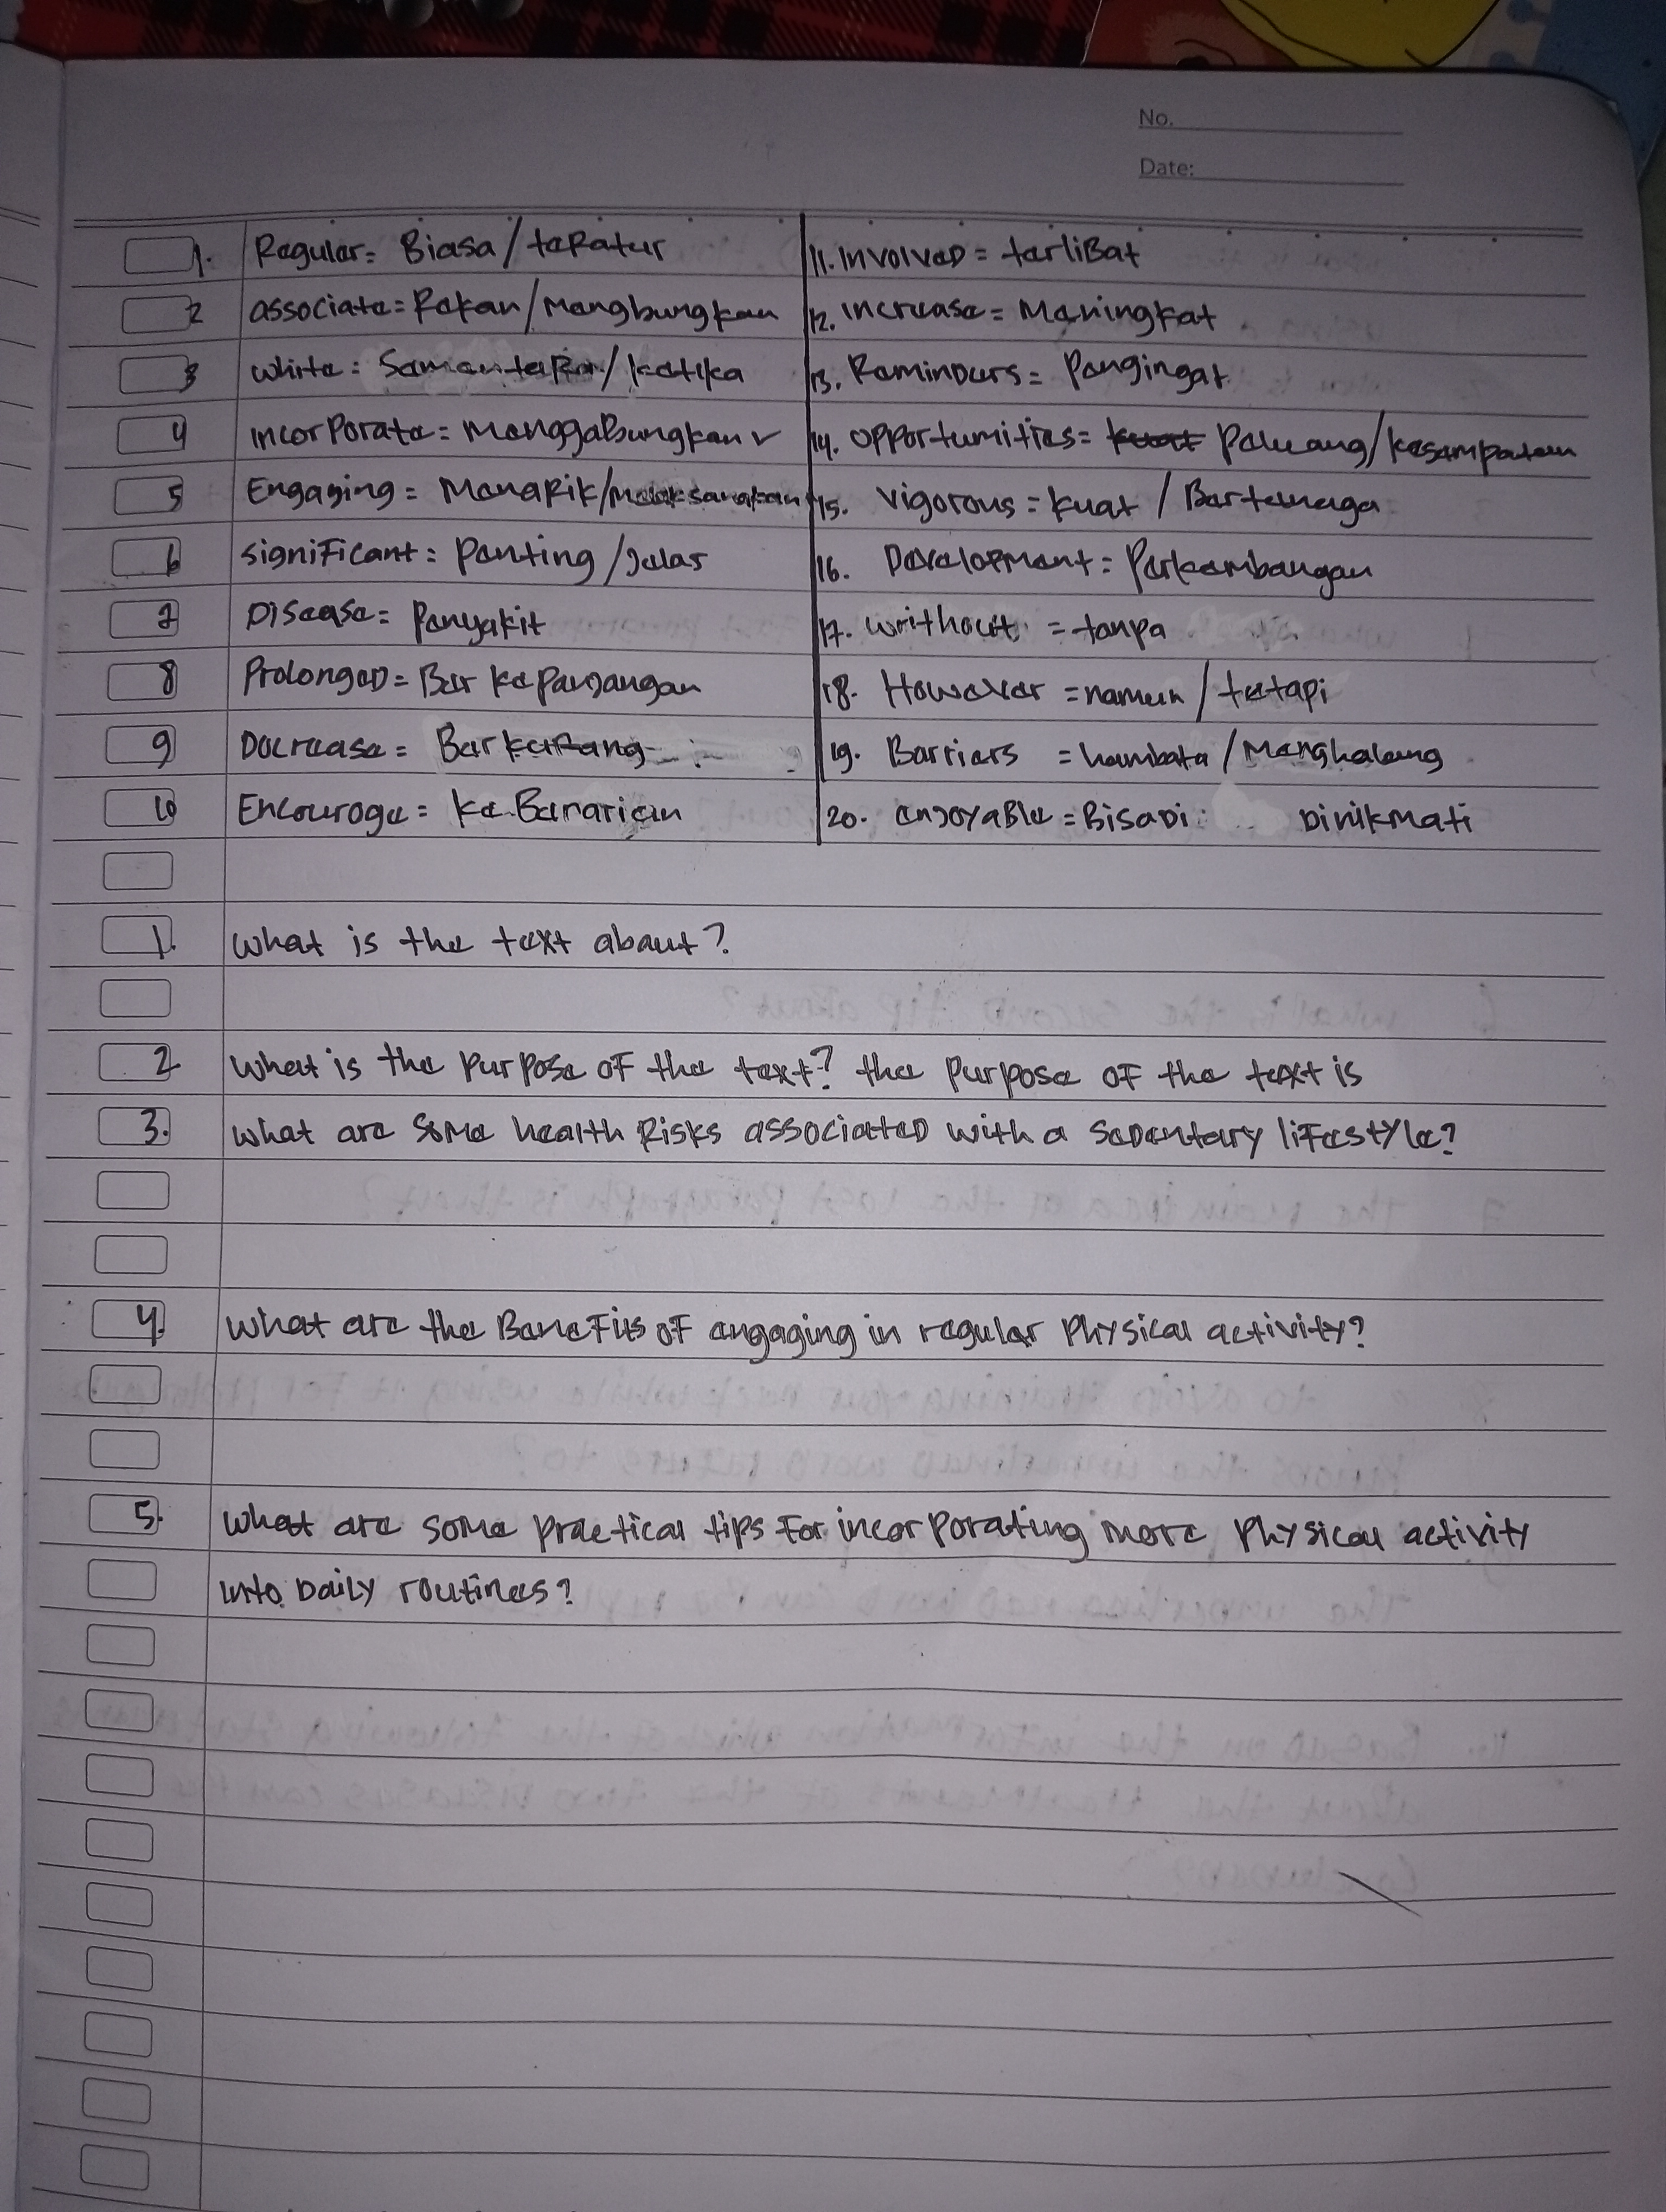 No.
Date:
1. Regular = Biasa / teratur
2 associate = Rekan / Mengbungkan
3 while = Sementara / ketika
4 incorporate = Menggabungkan
5 Engaging = Menarik / Melaksanakan
6 significant = Penting / Jelas
7 Disease = Penyakit
8 Prolonged = Berkepanjangan
9 Decrease = Berkurang
10 Encourage = Ke Beranian
11. Involved = terliBat
12. increase = Meningkat
13. Reminders = Pengingat
14. opportunities = Peluang / kesempatan
15. Vigorous = kuat / Bertenaga
16. Development = Perkembangan
17. writhout = tanpa
18. However = namun / tetapi
19. Barriers = hambata / Menghalang
20. enjoyable = Bisa Di Dinikmati
1. What is the text abaut?
2. What is the purpose of the text? the purpose of the text is
3. What are some health Risks associated with a sedentary lifestyle?
4. What are the Benefits of engaging in regular physical activity?
5. What are some practical tips for incorporating more physical activity
into Daily routines?